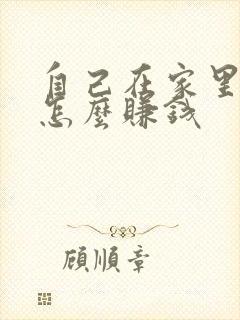 自己在家里
怎麼賺錢
顧順章